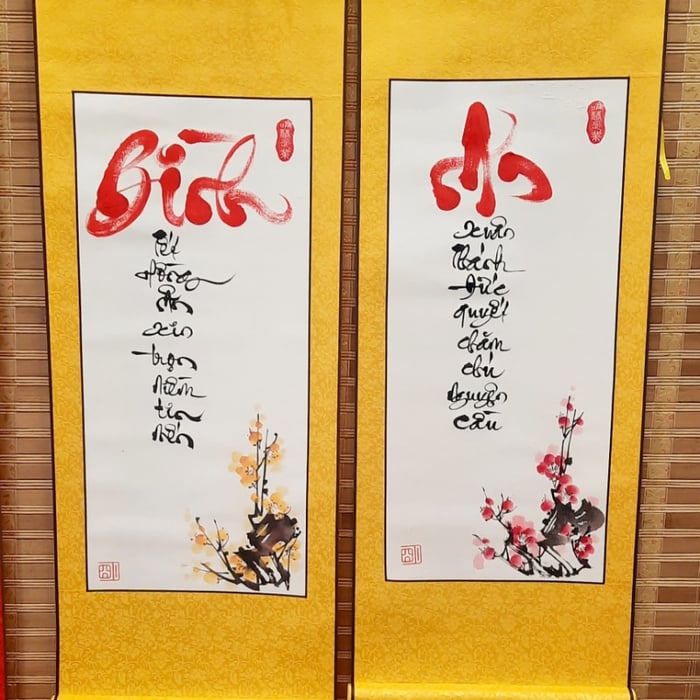 Bình
Tết
Hồng
Ân
xin
trọn
niềm
tin
mến
An
Xuân
Thánh
Đức
quyết
chăm
chú
nguyện
cầu